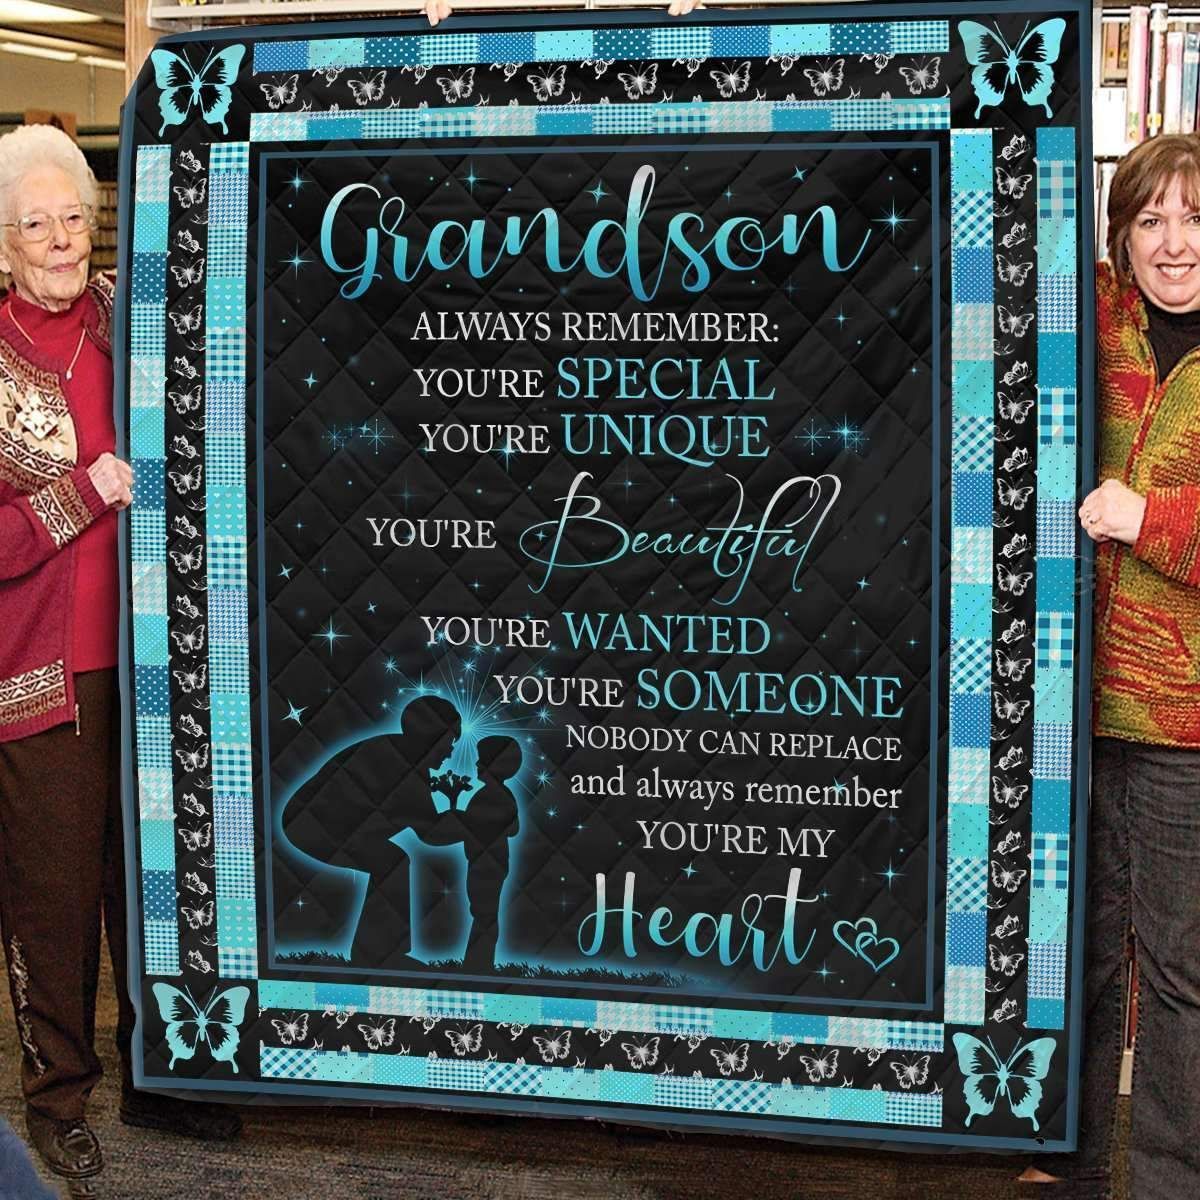 Grandson
ALWAYS REMEMBER:
YOU'RE SPECIAL
YOU'RE UNIQUE
YOU'RE Beautiful
YOU'RE WANTED
YOU'RE SOMEONE
NOBODY CAN REPLACE
and always remember
YOU'RE MY
Heart